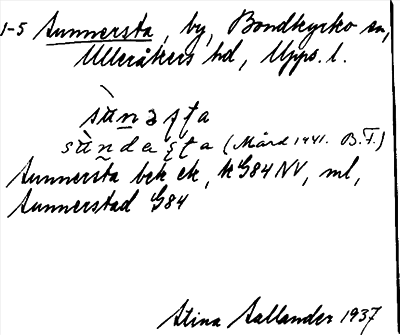 1-5 Sunnersta, by, Bondkyrko sn,
Ulleråkers hd, Upps. l.
sùnəsta
sùndəsta (Mård 1941. B.F.)
Sunnersta bek ek, k G84 NV, ml,
Sunnerstad G84
Stina Sallander 1937